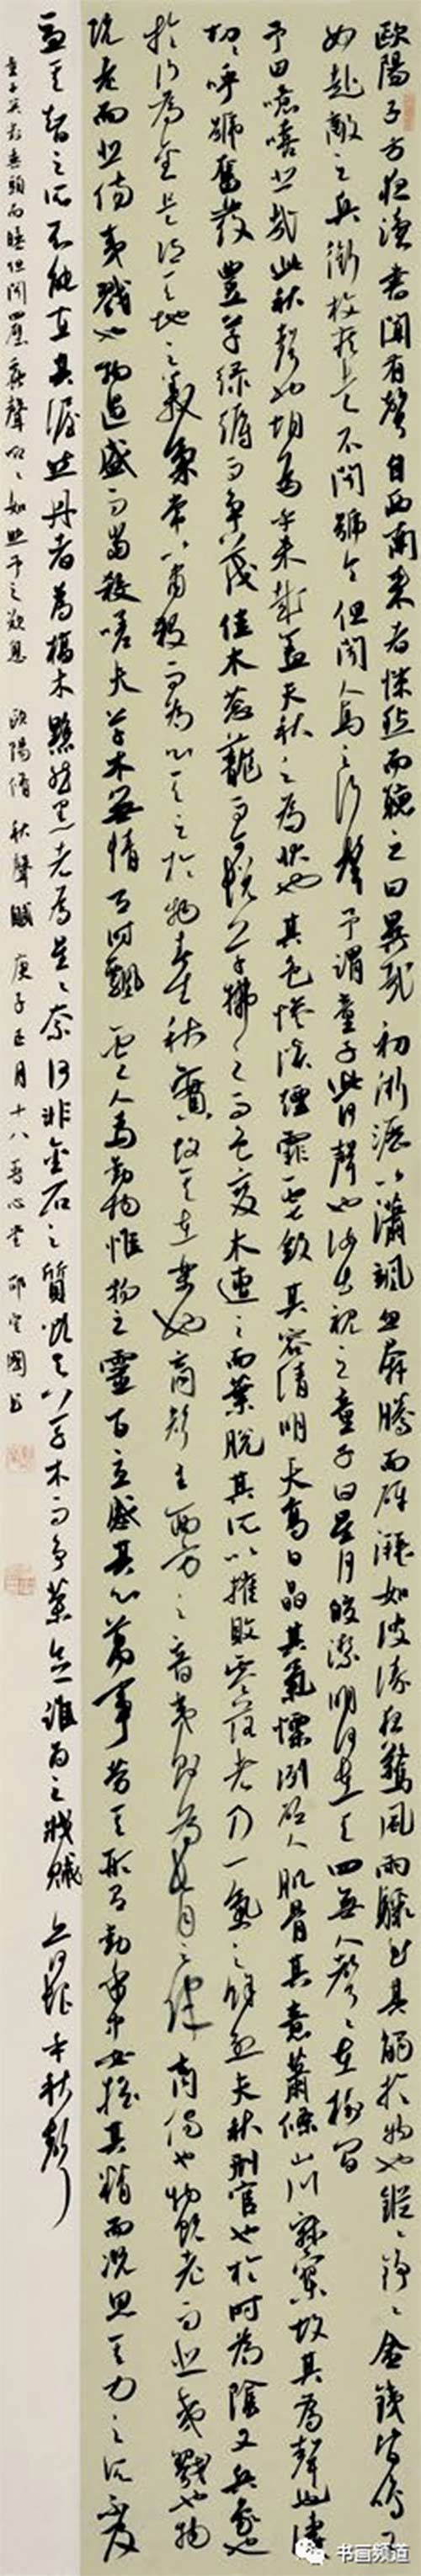 歐陽子方夜讀書聞有聲自西南來者悚然而聽之曰異哉初淅瀝以瀟颯忽奔騰而砰湃如波濤夜驚風雨驟至其觸於物也鏦鏦錚錚金鐵皆鳴又
如赴敵之兵銜枚疾走不聞號令但聞人馬之行聲予謂童子此何聲也汝出視之童子曰星月皎潔明河在天四無人聲聲在樹間
予曰噫嘻悲哉此秋聲也胡為乎來哉蓋夫秋之為狀也其色慘淡煙霏雲斂其容清明天高日晶其氣慄冽砭人肌骨其意蕭條山川寂寥故其為聲也淒
切切呼號奮發豐草綠縟而爭茂佳木蔥蘢而可悅草拂之而色變木遭之而葉脫其所以摧敗零落者乃一氣之餘烈夫秋刑官也於時為陰又兵象也
於行為金是謂天地之義氣常以肅殺而為心天之於物春生秋實故其在樂也商聲主西方之音夷則為七月之律商傷也物既老而悲夷戮也物
既老而悲傷夷戮也物過盛而當殺嗟夫草木無情有時飄零人為動物惟物之靈百憂感其心萬事勞其形有動乎中必搖其精而況思其力之所不及
憂其智之所不能宜其渥然丹者為槁木黟然黑者為星星奈何非金石之質欲以草木而爭榮念誰為之戕賊亦何恨乎秋聲
童子莫對垂頭而睡但聞四壁蟲聲唧唧如助予之歎息 歐陽脩 秋聲賦 庚子正月十八 國書
书画频道